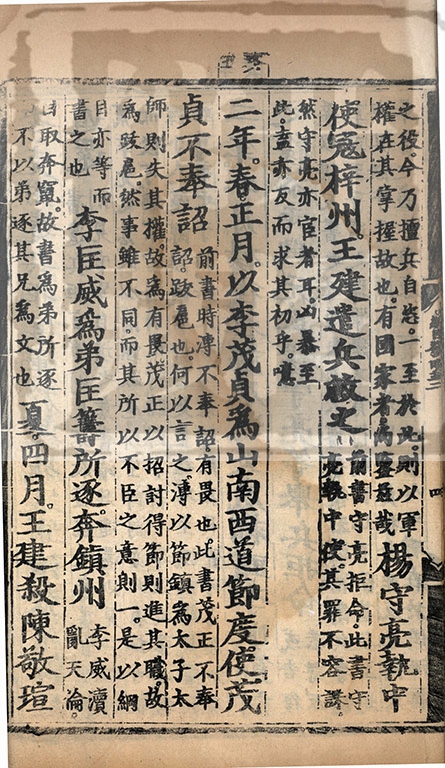 之役。今乃擅兵自恣。一至於此。則以軍
權在其掌握故也。有國家者。焉容茲哉
楊守亮執中
使寇梓州王建遣兵救之
前書守亮拒命。此書守
亮執中使。其罪不容誅。
然守亮亦宦者耳。凶暴至
此。蓋亦反而求其初乎。噫
二年。春。正月。以李茂貞爲山南西道節度使。茂
貞不奉詔
前書時溥不奉詔。有畏也。此書茂正不奉
詔。跋扈也。何以言之。溥以節鎮爲太子太
師則失其權。故爲有畏茂正以招討得節則進其職。故
爲跋扈。然事雖不同。而其所以不臣之意則一。是以綱
目亦等而
書之也
李匡威爲弟匡籌所逐。奔鎮州
李威瀆
亂天倫。
自取奔竄。故書爲弟所逐
不以弟逐其兄爲文也
夏。四月。王建殺陳敬瑄